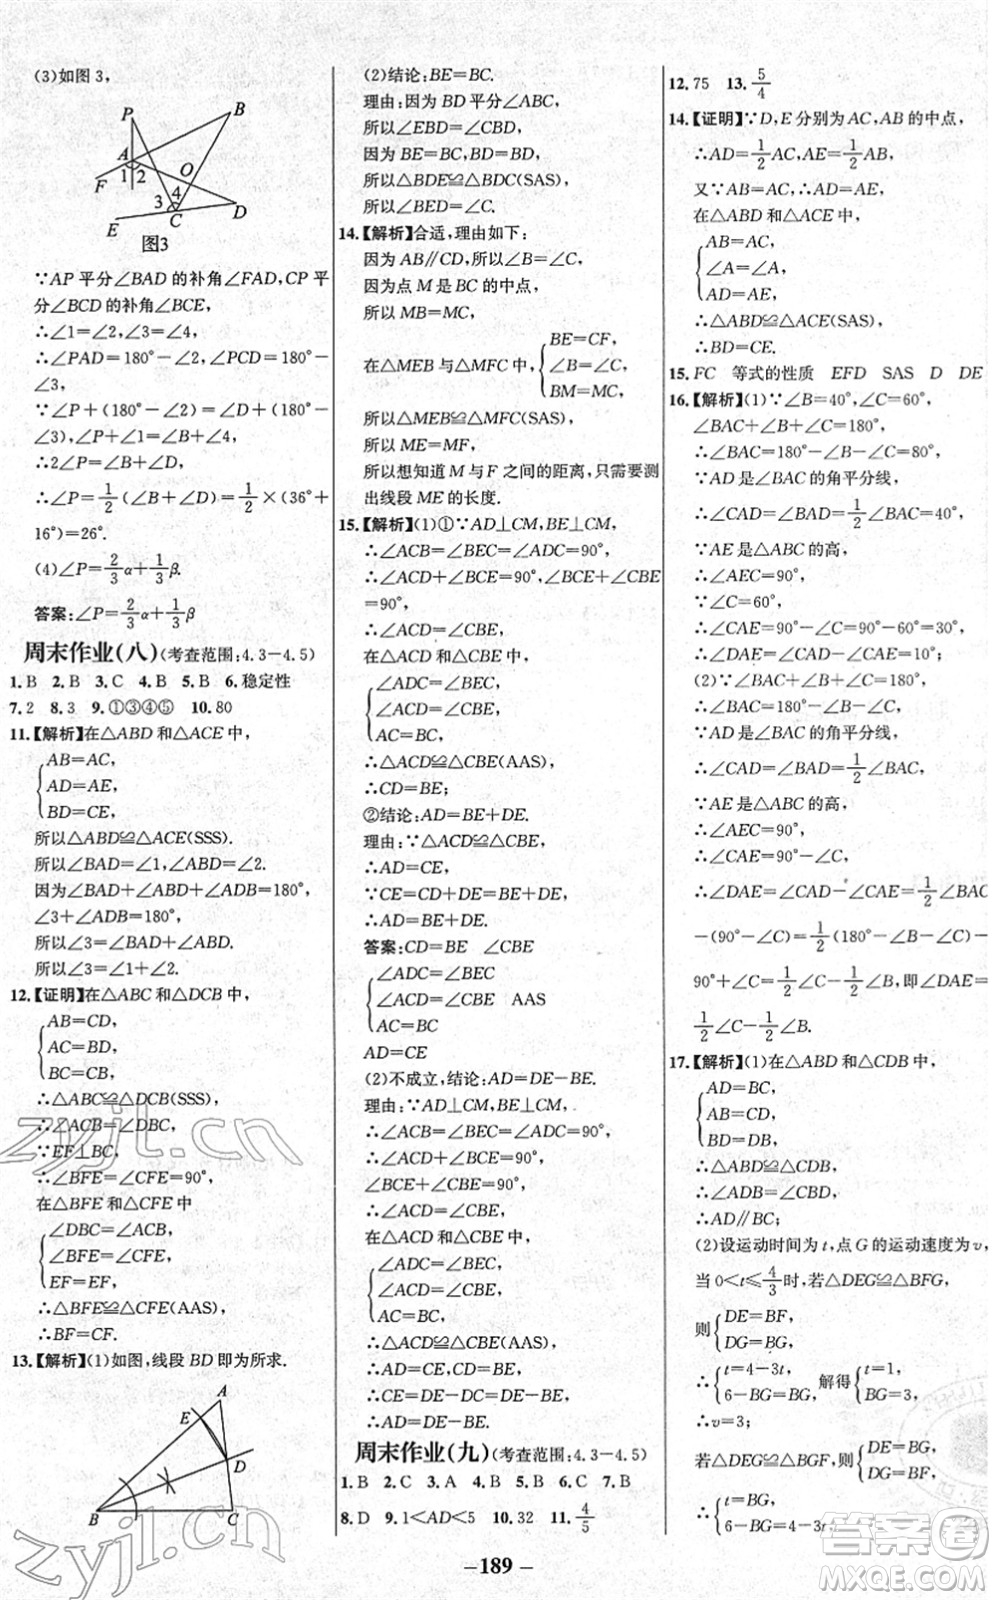 (3)如图3,
P
B
A
O
F
1
2
4
3
C
D
E
图3
∵AP平分∠BAD的补角∠FAD,CP平
分∠BCD的补角∠BCE,
∴∠1=∠2,∠3=∠4,
∴∠PAD=180°-∠2,∠PCD=180°-
∠3,
∵∠P+(180°-∠2)=∠D+(180°-
∠3),∠P+∠1=∠B+∠4,
∴2∠P=∠B+∠D,
∴∠P=1/2(∠B+∠D)=1/2×(36°+
16°)=26°.
(4)∠P=2/3α+1/3β.
答案:∠P=2/3α+1/3β
周末作业(八)(考查范围:4.3-4.5)
1.B 2.B 3.C 4.B 5.B 6.稳定性
7.2 8.3 9.①③④⑤ 10.80
11.【解析】在△ABD和△ACE中,
AB=AC,
AD=AE,
BD=CE,
所以△ABD≌△ACE(SSS).
所以∠BAD=∠1,∠ABD=∠2.
因为∠BAD+∠ABD+∠ADB=180°,
∠3+∠ADB=180°,
所以∠3=∠BAD+∠ABD.
所以∠3=∠1+∠2.
12.【证明】在△ABC和△DCB中,
AB=CD,
AC=BD,
BC=CB,
∴△ABC≌△DCB(SSS),
∴∠ACB=∠DBC,
∵EF⊥BC,
∴∠BFE=∠CFE=90°,
在△BFE和△CFE中
∠DBC=∠ACB,
∠BFE=∠CFE,
EF=EF,
∴△BFE≌△CFE(AAS),
∴BF=CF.
13.【解析】(1)如图,线段BD即为所求.
A
E
D
B
C
(2)结论:BE=BC.
理由:因为BD平分∠ABC,
所以∠EBD=∠CBD,
因为BE=BC,BD=BD,
所以△BDE≌△BDC(SAS),
所以∠BED=∠C.
14.【解析】合适,理由如下:
因为AB∥CD,所以∠B=∠C,
因为点M是BC的中点,
所以MB=MC,
在△MEB与△MFC中,
BE=CF,
∠B=∠C,
BM=MC,
所以△MEB≌△MFC(SAS),
所以ME=MF,
所以想知道M与F之间的距离,只需要测
出线段ME的长度.
15.【解析】(1)①∵AD⊥CM,BE⊥CM,
∴∠ACB=∠BEC=∠ADC=90°,
∴∠ACD+∠BCE=90°,∠BCE+∠CBE
=90°,
∴∠ACD=∠CBE,
在△ACD和△CBE中,
∠ADC=∠BEC,
∠ACD=∠CBE,
AC=BC,
∴△ACD≌△CBE(AAS),
∴CD=BE;
②结论:AD=BE+DE.
理由:∵△ACD≌△CBE,
∴AD=CE,
∵CE=CD+DE=BE+DE,
∴AD=BE+DE.
答案:CD=BE ∠CBE
∠ADC=∠BEC
∠ACD=∠CBE AAS
AC=BC
AD=CE
(2)不成立,结论:AD=DE-BE.
理由:∵AD⊥CM,BE⊥CM,
∴∠ACB=∠BEC=∠ADC=90°,
∴∠ACD+∠BCE=90°,
∠BCE+∠CBE=90°,
∴∠ACD=∠CBE,
在△ACD和△CBE中,
∠ADC=∠BEC,
∠ACD=∠CBE,
AC=BC,
∴△ACD≌△CBE(AAS),
∴AD=CE,CD=BE,
∴CE=DE-DC=DE-BE,
∴AD=DE-BE.
周末作业(九)(考查范围:4.3-4.5)
1.B 2.C 3.A 4.B 5.B 6.C 7.B
8.D 9.1<AD<5 10.32 11.4/5
12.75 13.5/4
14.【证明】∵D,E分别为AC,AB的中点,
∴AD=1/2AC,AE=1/2AB,
又∵AB=AC,∴AD=AE,
在△ABD和△ACE中,
AB=AC,
∠A=∠A,
AD=AE,
∴△ABD≌△ACE(SAS),
∴BD=CE.
15.FC 等式的性质 EFD SAS D DE
16.【解析】(1)∵∠B=40°,∠C=60°,
∠BAC+∠B+∠C=180°,
∴∠BAC=180°-∠B-∠C=80°,
∵AD是∠BAC的角平分线,
∴∠CAD=∠BAD=1/2∠BAC=40°,
∵AE是△ABC的高,
∴∠AEC=90°,
∵∠C=60°,
∴∠CAE=90°-∠C=90°-60°=30°,
∴∠DAE=∠CAD-∠CAE=10°;
(2)∵∠BAC+∠B+∠C=180°,
∴∠BAC=180°-∠B-∠C,
∵AD是∠BAC的角平分线,
∴∠CAD=∠BAD=1/2∠BAC,
∵AE是△ABC的高,
∴∠AEC=90°,
∴∠CAE=90°-∠C,
∴∠DAE=∠CAD-∠CAE=1/2∠BAC
-(90°-∠C)=1/2(180°-∠B-∠C)-
90°+∠C=1/2∠C-1/2∠B,即∠DAE=
1/2∠C-1/2∠B.
17.【解析】(1)在△ABD和△CDB中,
AD=BC,
AB=CD,
BD=DB,
∴△ABD≌△CDB,
∴∠ADB=∠CBD,
∴AD∥BC;
(2)设运动时间为t,点G的运动速度为v,
当0<t≤4/3时,若△DEG≌△BFG,
则{DE=BF,
DG=BG,
∴{t=4-3t, 解得{t=1,
6-BG=BG, BG=3,
∴v=3;
若△DEG≌△BGF,则{DE=BG,
DG=BF,
∴{t=BG,
6-BG=4-3t,
-189-
zyjl.cn
zyjl.cn
答案圈
MXQE.COM